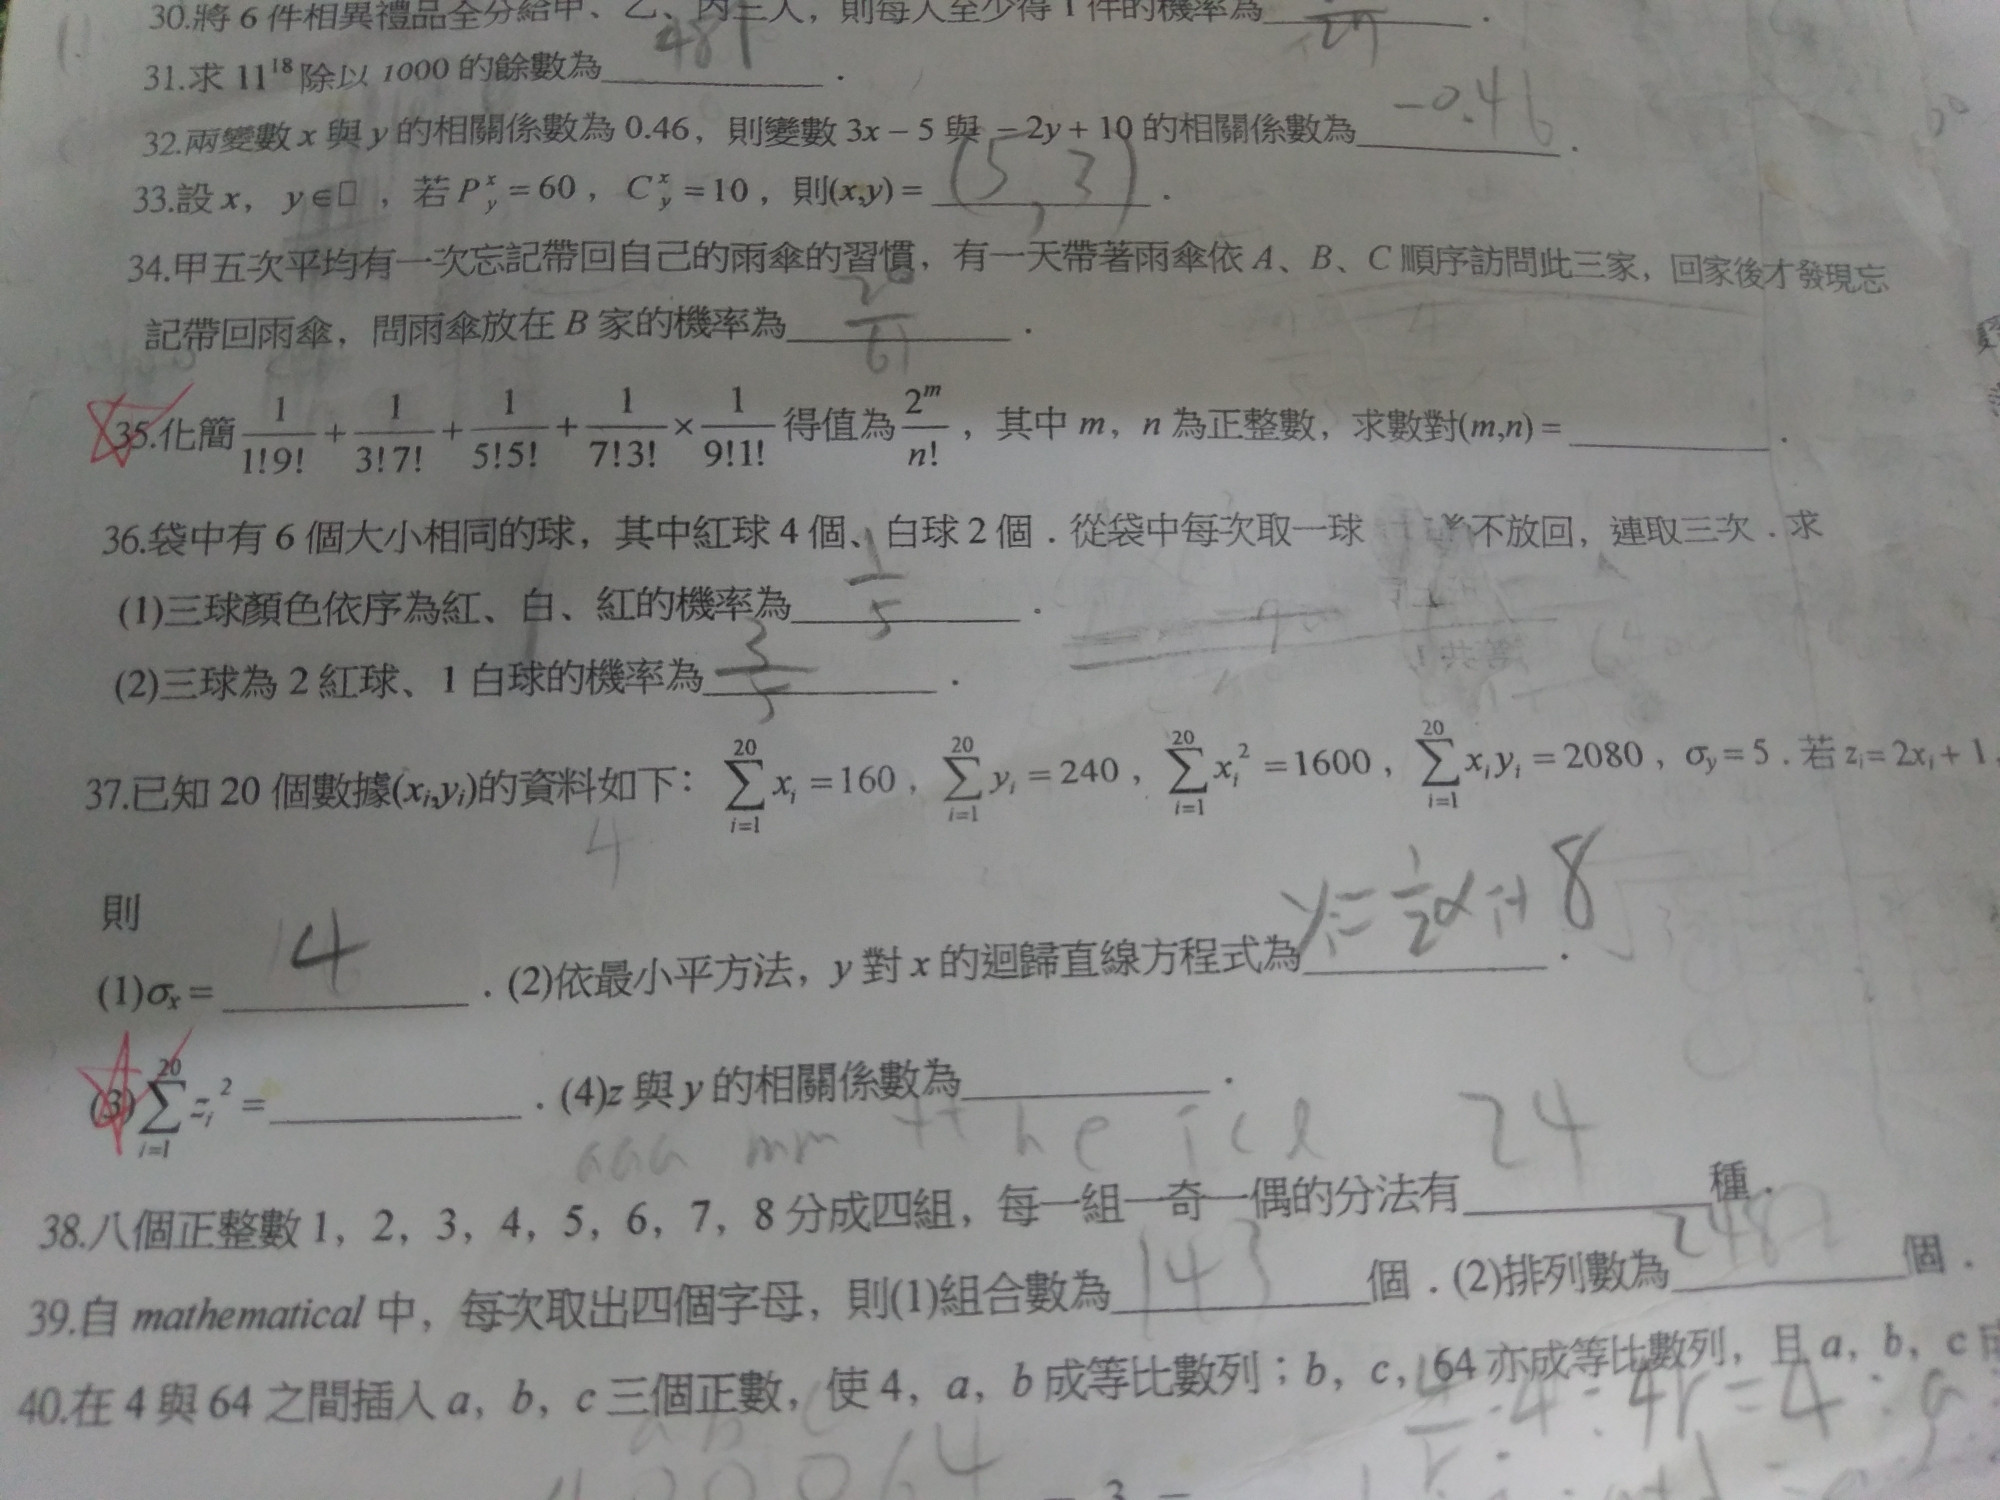 30.將 6 件相異禮品全分給甲、乙、丙三人，則每人至少得 1 件的機率為 27 .
31.求 11^18 除以 1000 的餘數為 481 .
32.兩變數 x 與 y 的相關係數為 0.46，則變數 3x − 5 與 − 2y + 10 的相關係數為 −0.46 .
33.設 x， y∈□ ，若 P^x_y = 60， C^x_y = 10，則(x,y) = (5,3) .
34.甲五次平均有一次忘記帶回自己的雨傘的習慣，有一天帶著雨傘依 A、B、C 順序訪問此三家，回家後才發現忘
記帶回雨傘，問雨傘放在 B 家的機率為 20/61 .
35.化簡 1/1!9! + 1/3!7! + 1/5!5! + 1/7!3! × 1/9!1! 得值為 2^m/n! ，其中 m，n 為正整數，求數對(m,n) = .
36.袋中有 6 個大小相同的球，其中紅球 4 個、白球 2 個．從袋中每次取一球 不放回，連取三次．求
(1)三球顏色依序為紅、白、紅的機率為 1/5 .
(2)三球為 2 紅球、1 白球的機率為 3/5 .
37.已知 20 個數據(xi,yi)的資料如下： ∑_{i=1}^{20} xi = 160， ∑_{i=1}^{20} yi = 240， ∑_{i=1}^{20} xi² = 1600， ∑_{i=1}^{20} xiyi = 2080， σy = 5．若 zi = 2xi + 1，
4
則
(1)σx = 4 ．(2)依最小平方法，y 對 x 的迴歸直線方程式為 yi = 1/2 xi + 8 .
(3) ∑_{i=1}^{20} zi² = ．(4)z 與 y 的相關係數為 .
aaa mm tt h e i c l
38.八個正整數 1，2，3，4，5，6，7，8 分成四組，每一組一奇一偶的分法有 24 種．
39.自 mathematical 中，每次取出四個字母，則(1)組合數為 143 個．(2)排列數為 2482 個．
40.在 4 與 64 之間插入 a，b，c 三個正數，使 4，a，b 成等比數列；b，c，64 亦成等比數列，且 a，b，c 成